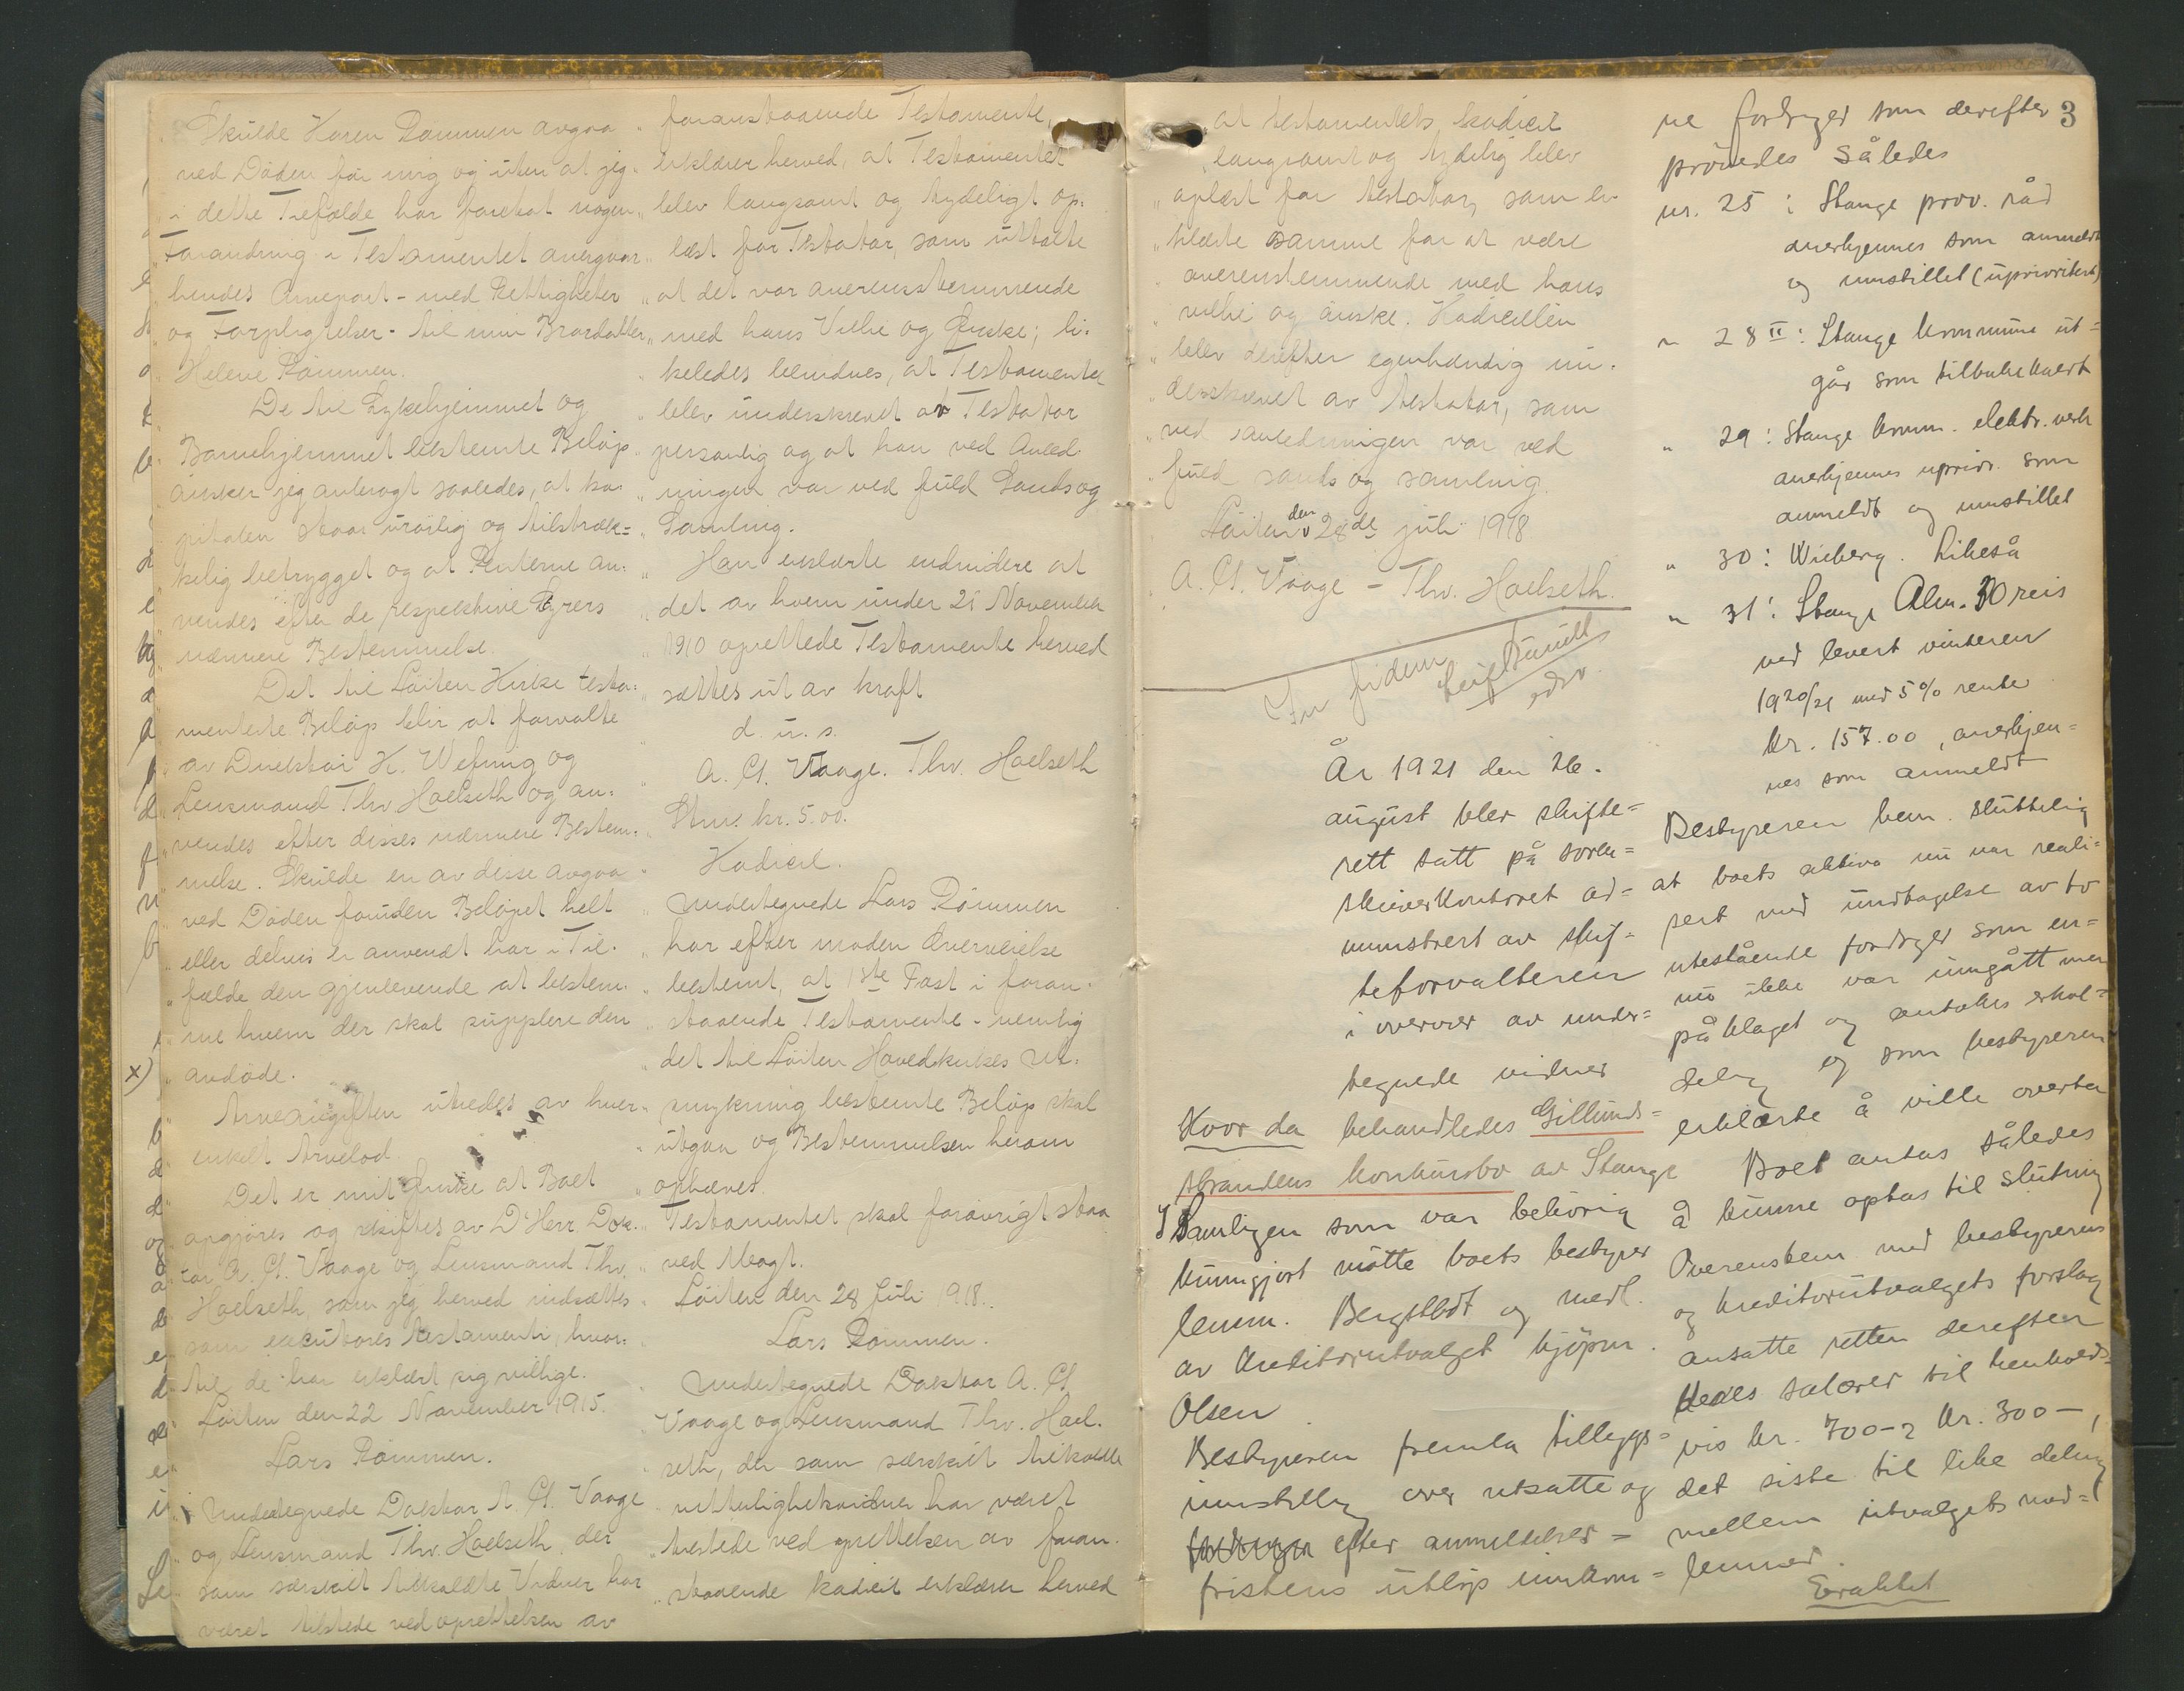 Skulde Karen Rømmen avgaa
ved Døden før mig og uten at jeg
i dette Tilfælde har foretat nogen
Forandring i Testamentet overgaar
hendes Arvepart - med Rettigheter
og Forpligtelser - til min Brordatter
Helene Rømmen.
De til Sykehjemmet og
Barnehjemmet bestemte Beløp
ønsker jeg anbragt saaledes, at ka-
pitalen staar urørlig og tilstræk=
kelig betrygget og at Renterne an-
vendes efter de respektive Styrers
nærmere Bestemmelse.
Det til Løiten Kirke testa-
menterte Beløp blir at forvalte
av Direktør K. Wefring og
Lensmand Thv. Hoelseth og an-
vendes efter disses nærmere Bestem-
melse. Skulde en av disse avgaa
ved Døden førinden Beløpet helt
eller delvis er anvendt har i Til-
fælde den gjenlevende at bestem-
me hvem der skal supplere den
x) avdøde.
Arveavgiften utredes av hver
enkelt Arvelod.
Det er mit Ønske at Boet
opgjøres og skiftes av D'Herr Dok-
tor A. Cl. Vaage og Lensmand Thv.
Hoelseth, som jeg herved indsættes
som executores testamenti, hvor-
til de har erklært sig villige.
Løiten den 22 November 1915.
Lars Rømmen.
Undertegnede Doktor A. Cl. Vaage
og Lensmand Thv. Hoelseth, der
som særskilt tilkaldte Vidner har
været tilstede ved oprettelsen av
foranstaaende Testamente,
erklærer herved, at Testamentet
blev langsomt og tydeligt op-
læst for Testator, som uttalte
at det var overensstemmende
med hans Vilje og Ønske; li-
keledes bevidnes, at Testamentet
blev underskrevet av Testator
personlig og at han ved Anled-
ningen var ved fuld Sands og
Samling.
Han erklærte endvidere at
det av hvem under 21 November
1910 oprettede Testamente herved
sættes ut av kraft
d. u. s.
A. Cl. Vaage. Thv. Hoelseth
Stm. kr. 5.00.
Kodicil.
Undertegnede Lars Rømmen
har efter moden Overveielse
bestemt, at 1ste Post i foran-
staaende Testamente - nemlig
det til Løiten Hovedkirkes Ut-
smykning bestemte Beløp skal
utgaa og Bestemmelsen herom
ophæves.
Testamentet skal forøvrigt staa
ved Magt.
Løiten den 28 Juli 918.
Lars Rømmen.
Undertegnede Doktor A. Cl.
Vaage og Lensmand Thv. Hoel-
seth, der som særskilt tilkaldte
vitterlighetsvidner har været
tilstede ved oprettelsen av foran-
staaende kodicil erklærer herved
at testamentets kodicil
langsomt og tydelig blev
oplæst for testator, som er-
klærte samme for at være
overensstemmende med hans
vilje og ønske. Kodicillen
blev derefter egenhændig un-
derskrevet av testator, som
ved anledningen var ved
fuld sands og samling.
Løiten den 28de juli 1918
A. Cl. Vaage - Thv. Hoelseth.
In fidem
edsv.
År 1921 den 26.
august blev skifte=
rett satt på soren=
skriverkontoret ad=
ministrert av skif=
teforvalteren
i overvær av under=
tegnede vidner
Hvor da behandledes Gillund=
strandens konkursbo av Stange
I Samlingen som var behørig
kunngjort møtte boets bestyrer
lensm. Bergstedt og medl.
av kreditorutvalget kjøpm.
Olsen
Bestyreren fremla tilleggs=
innstilling over utsatte og
efter anmeldelses=
fristens utløp innkom=
3
ne fordringer som derefter
prøvedes således
nr. 25 : Stange prov. råd
anerkjennes som anmeldt
og innstillet (uprioritert)
" 28 II : Stange kommune ut=
går som tilbakekalt
" 29 : Stange komm. elektr. verk
anerkjennes uprior. som
anmeldt og innstillet
" 30 : Wiberg. Likeså
" 31 : Stange Alm.
ved levert vinteren
1920/21 med 5% rente
kr. 157.00, anerkjen=
nes som anmeldt
Bestyreren bem. sluttelig
at boets aktiva nu var reali=
sert med undtagelse av to
utestående fordringer som en=
nu ikke var inngått men
påklaget og antokes erhol=
delig og som bestyreren
erklærte å ville overta
Boet antas således
å kunne optas til slutning
Overensstem. med bestyrerens
og kreditorutvalgets forslag
ansatte retten derefter
deres salærer til henholds=
vis kr. 700- og kr. 300-,
det siste til like deling
mellem utvalgets med=
lemmer.
Erakltet